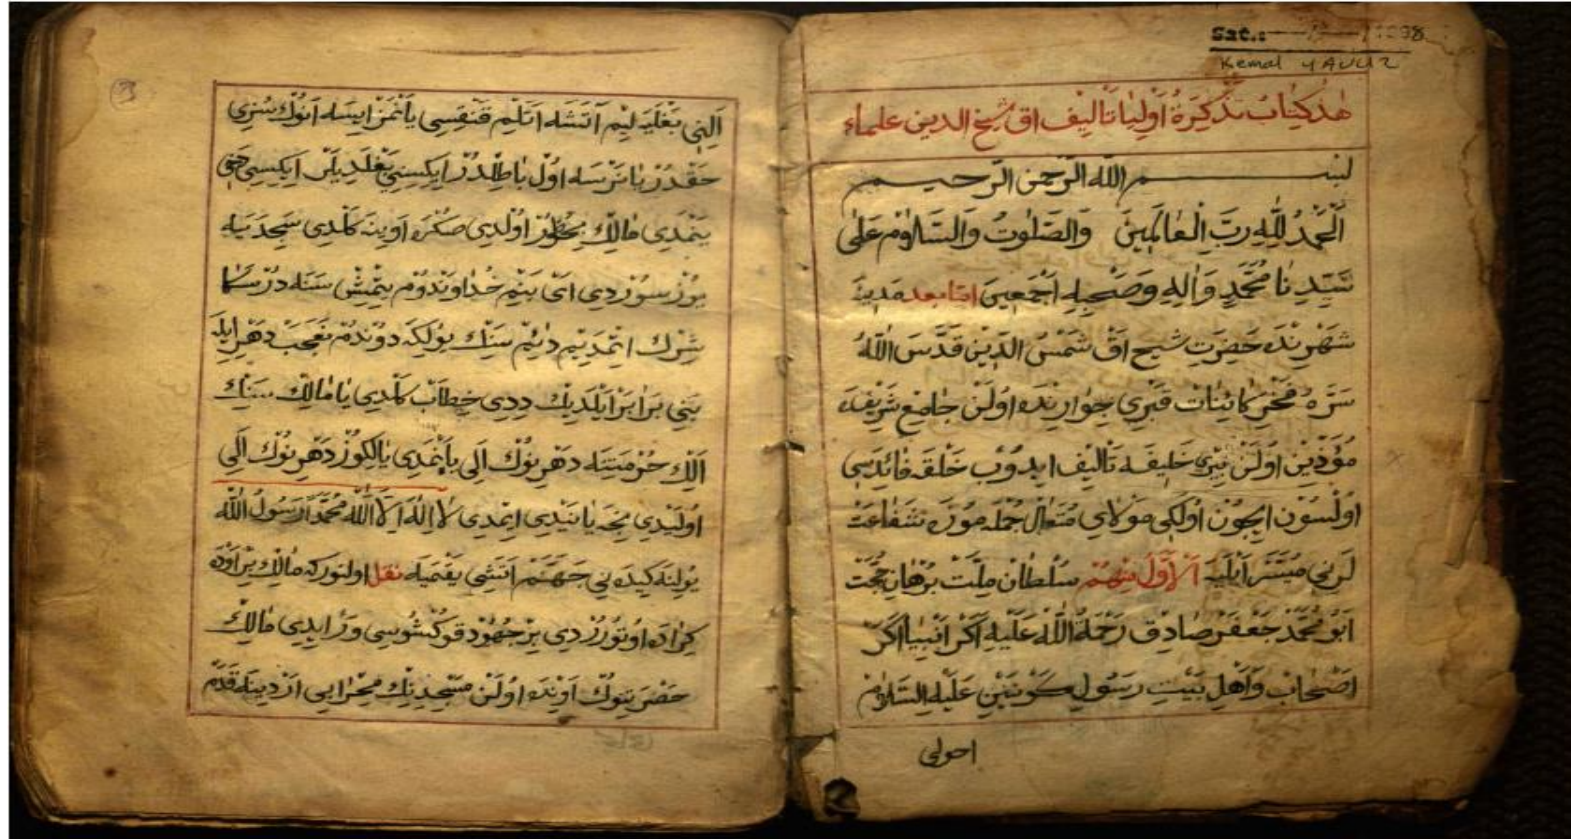 Sat.: / /1998
Kemal YAVUZ
هذ كتاب تَذْكِرَةُ اَوْلِيَا تَأليف اق شيخ الدين علماء
بســـم اللّٰه الرّحمن الرّحيم
اَلْحَمْدُ لِلّٰهِ رَبِّ الْعَالَمِينَ وَالصَّلٰوتُ وَالسَّلَامُ عَلٰى
سَيِّدِنَا مُحَمَّدٍ وَاٰلِهِ وَصَحْبِهِ اَجْمَعِينَ امّا بعد مدينه
شَهْرِنْدَه حَضَرَتِ شيخ اقْ شَمْسُ الدِّينْ قَدَّسَ اللّٰهُ
سَرَّهُ فَخْرِ كَائِنَات قَبْرِي جِوَارِنْدَه اُولَنْ جَامِعِ شَرِيفْدَه
مُؤَذِّنِ اُولَنْ بِرِي خَلِيفَه تَألِيف ايدُوبْ خَلْقَه فَائِدَسِي
اُولْسُونْ ايچُونْ اُولَكِي مَوْلَايِ مُتَعَالْ جُمْلَه مُوزَه شَفَاعَتْ
لَرِنِي مُيَسَّرْ اَيْلَيَه اَلْاَوَّلُ مِنْهُمْ سُلْطَانْ مِلَّتْ بُرْهَانِ حُجَّتْ
اَبُو مُحَمَّدْ جَعْفَرْ صَادِقْ رَحْمَةُ اللّٰهِ عَلَيْهِ اَكَرْ اَنْبِيَا اَكَرْ
اَصْحَابْ وَاَهْلِ بَيْتِ رَسُولِ كَوْنَيْنِ عَلَيْهِ السَّلَامْ
احولى
3
اَلِنِي بَغْلَيَه لِيمْ آتَشَه اَتَلِمْ قَنْقِسِي يَانْمَزْ ايسَه اَنُوكْ سُوزِي
حَقْدُرْ يَانَرْسَه اُولْ بَاطِلْدُرْ ايكِسِنِي بَغْلَدِيلَرْ ايكِسِي دَخِي
يَنْمَدِي مَالِكْ اُولْدِي صُكْرَه اَوِينَه كَلْدِي سَجْدَيَه
يُوزْ سورْدِي اَيْ بَنِمْ خُدَاوَنْدُومْ يِتْمِشْ سَنَه دُرْ سَكَا
شِرْكْ اتْمَدِيمْ دَائِمْ سَنِكْ يُولِكَه دُونْدُمْ نَعَجَبْ دَهْرِ ايلَه
بَنِي بَرَابَرْ اَيْلَدِيكْ دِدِي خِطَابْ كَلْدِي يَا مَالِكْ سَنِكْ
اَلِكْ حُرْمَتِنَه دَهْرِنُوكْ اَلِي يَانْمَدِي يَالكُوزْ دَهْرِنُوكْ اَلِي
اُولَيْدِي يَنَيْدِي ايمْدِي لَا اِلٰهَ اِلَّا اللّٰهْ مُحَمَّدًا رَسُولُ اللّٰهْ
يُولِنَه كِيدَه نِي جَهَنَّمْ اَتَشِي يَقْمَيَه نقل اولنوركه مَالِكْ بِرْ اَوْدَه
كِرَادَه اُوتُورُرْدِي بِرْ جُهُودْ قُوكْشُوسِي وَرْ ايدِي مَالِكْ
حَضَرَتِنُوكْ اَوِنْدَه اُولَنْ مَسْجِدِنِكْ مِحْرَابِي اَرْدِينَه قَدَمْ